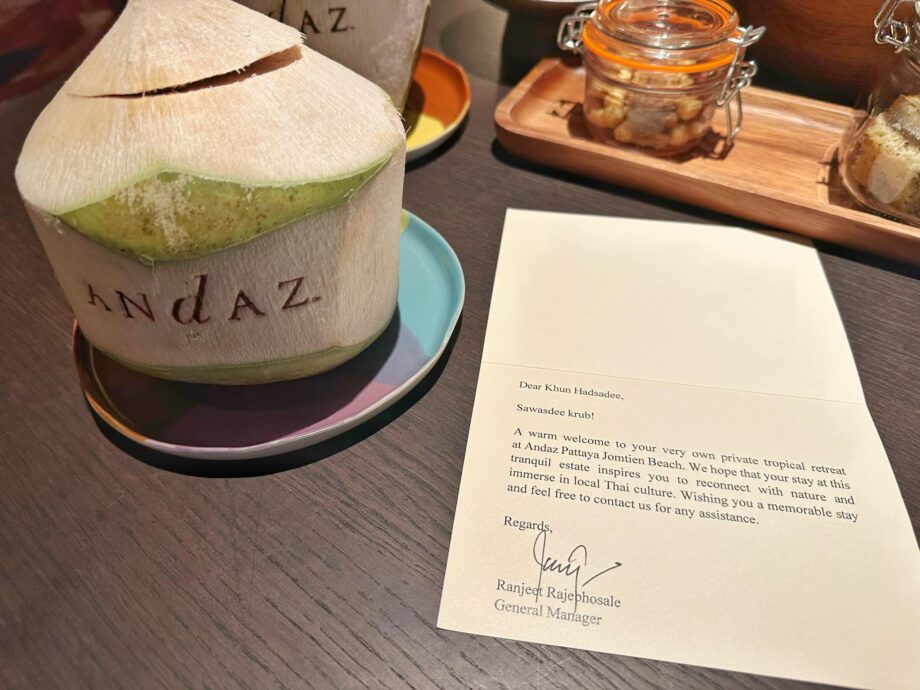 ANdAZ
ANdAZ
Dear Khun Hadsadee,
Sawasdee krub!
A warm welcome to your very own private tropical retreat
at Andaz Pattaya Jomtien Beach. We hope that your stay at this
tranquil estate inspires you to reconnect with nature and
immerse in local Thai culture. Wishing you a memorable stay
and feel free to contact us for any assistance.
Regards,
Ranjeet Rajebhosale
General Manager